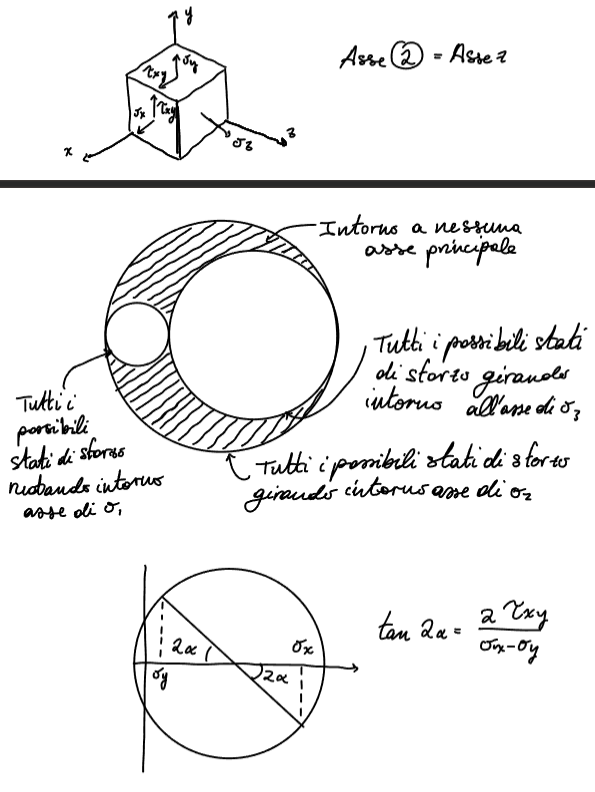 y
Asse 2 = Asse z
τxy σy
σx τxy
x
σ3
z
Intorno a nessuna
asse principale
Tutti i possibili stati
di sforzo girando
intorno all'asse di σ3
Tutti i
possibili
stati di sforzo
ruotando intorno
asse di σ1
Tutti i possibili stati di sforzo
girando intorno asse di σ2
2α
σx
σy
2α
tan 2α = 2 τxy / σx-σy